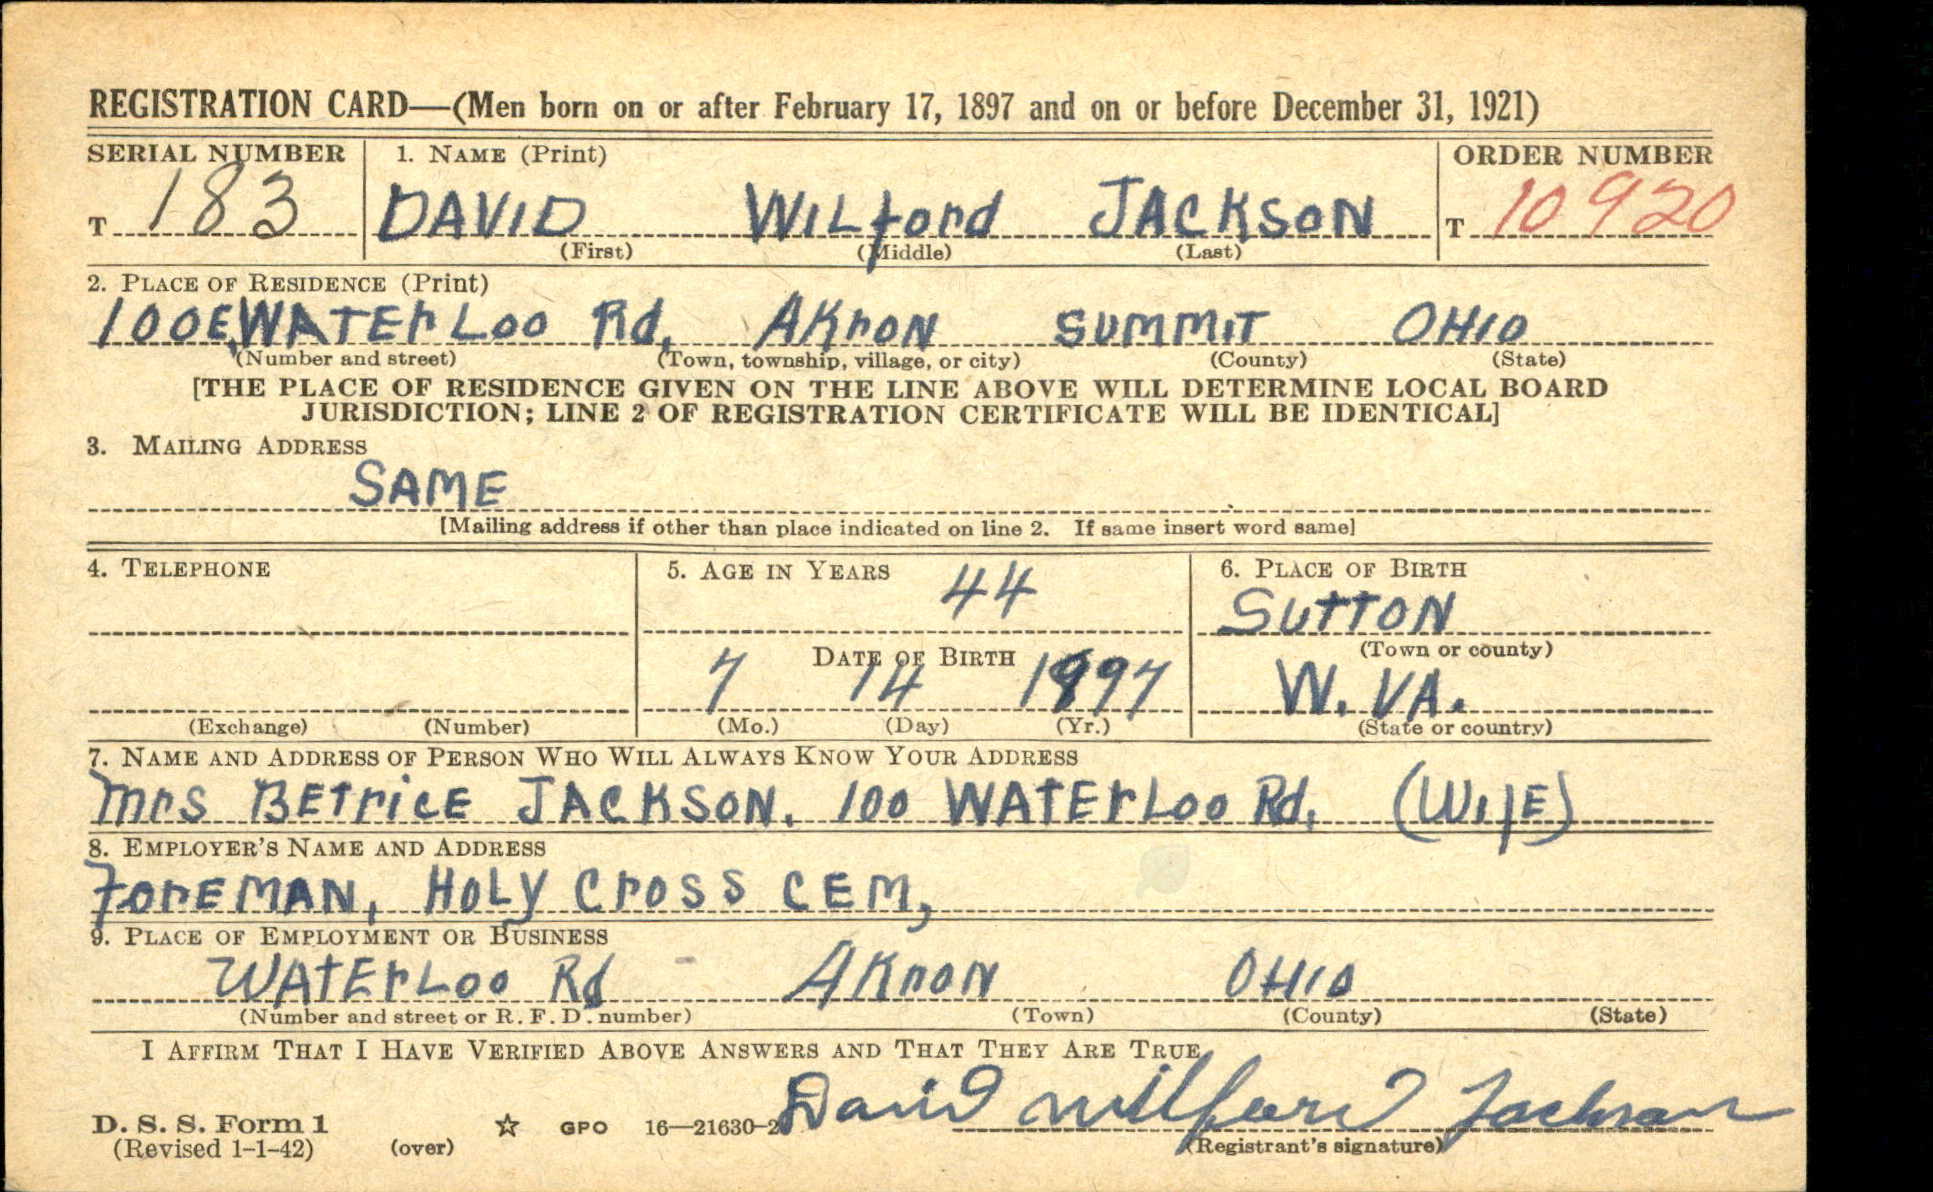 REGISTRATION CARD—(Men born on or after February 17, 1897 and on or before December 31, 1921)
SERIAL NUMBER 1. NAME (Print) ORDER NUMBER
T 183 DAVID WILford JACKSON T 10920
(First) (Middle) (Last)
2. PLACE OF RESIDENCE (Print)
100 E. WATErLoo Rd, AKroN SUMMIT OHIO
(Number and street) (Town, township, village, or city) (County) (State)
[THE PLACE OF RESIDENCE GIVEN ON THE LINE ABOVE WILL DETERMINE LOCAL BOARD
JURISDICTION; LINE 2 OF REGISTRATION CERTIFICATE WILL BE IDENTICAL]
3. MAILING ADDRESS
SAME
[Mailing address if other than place indicated on line 2. If same insert word same]
4. TELEPHONE 5. AGE IN YEARS 6. PLACE OF BIRTH
44 SUTTON
(Town or county)
DATE OF BIRTH
7 14 1897 W. VA.
(Exchange) (Number) (Mo.) (Day) (Yr.) (State or country)
7. NAME AND ADDRESS OF PERSON WHO WILL ALWAYS KNOW YOUR ADDRESS
Mrs BETriCE JACKSON. 100 WATErLoo Rd. (WifE)
8. EMPLOYER'S NAME AND ADDRESS
ForEMAN, HOLY CroSS CEM,
9. PLACE OF EMPLOYMENT OR BUSINESS
WATErLoo Rd AKroN OHIO
(Number and street or R. F. D. number) (Town) (County) (State)
I AFFIRM THAT I HAVE VERIFIED ABOVE ANSWERS AND THAT THEY ARE TRUE
D. S. S. Form 1 ☆ GPO 16—21630-2 David Wilford Jackson
(Revised 1-1-42) (over) (Registrant's signature)